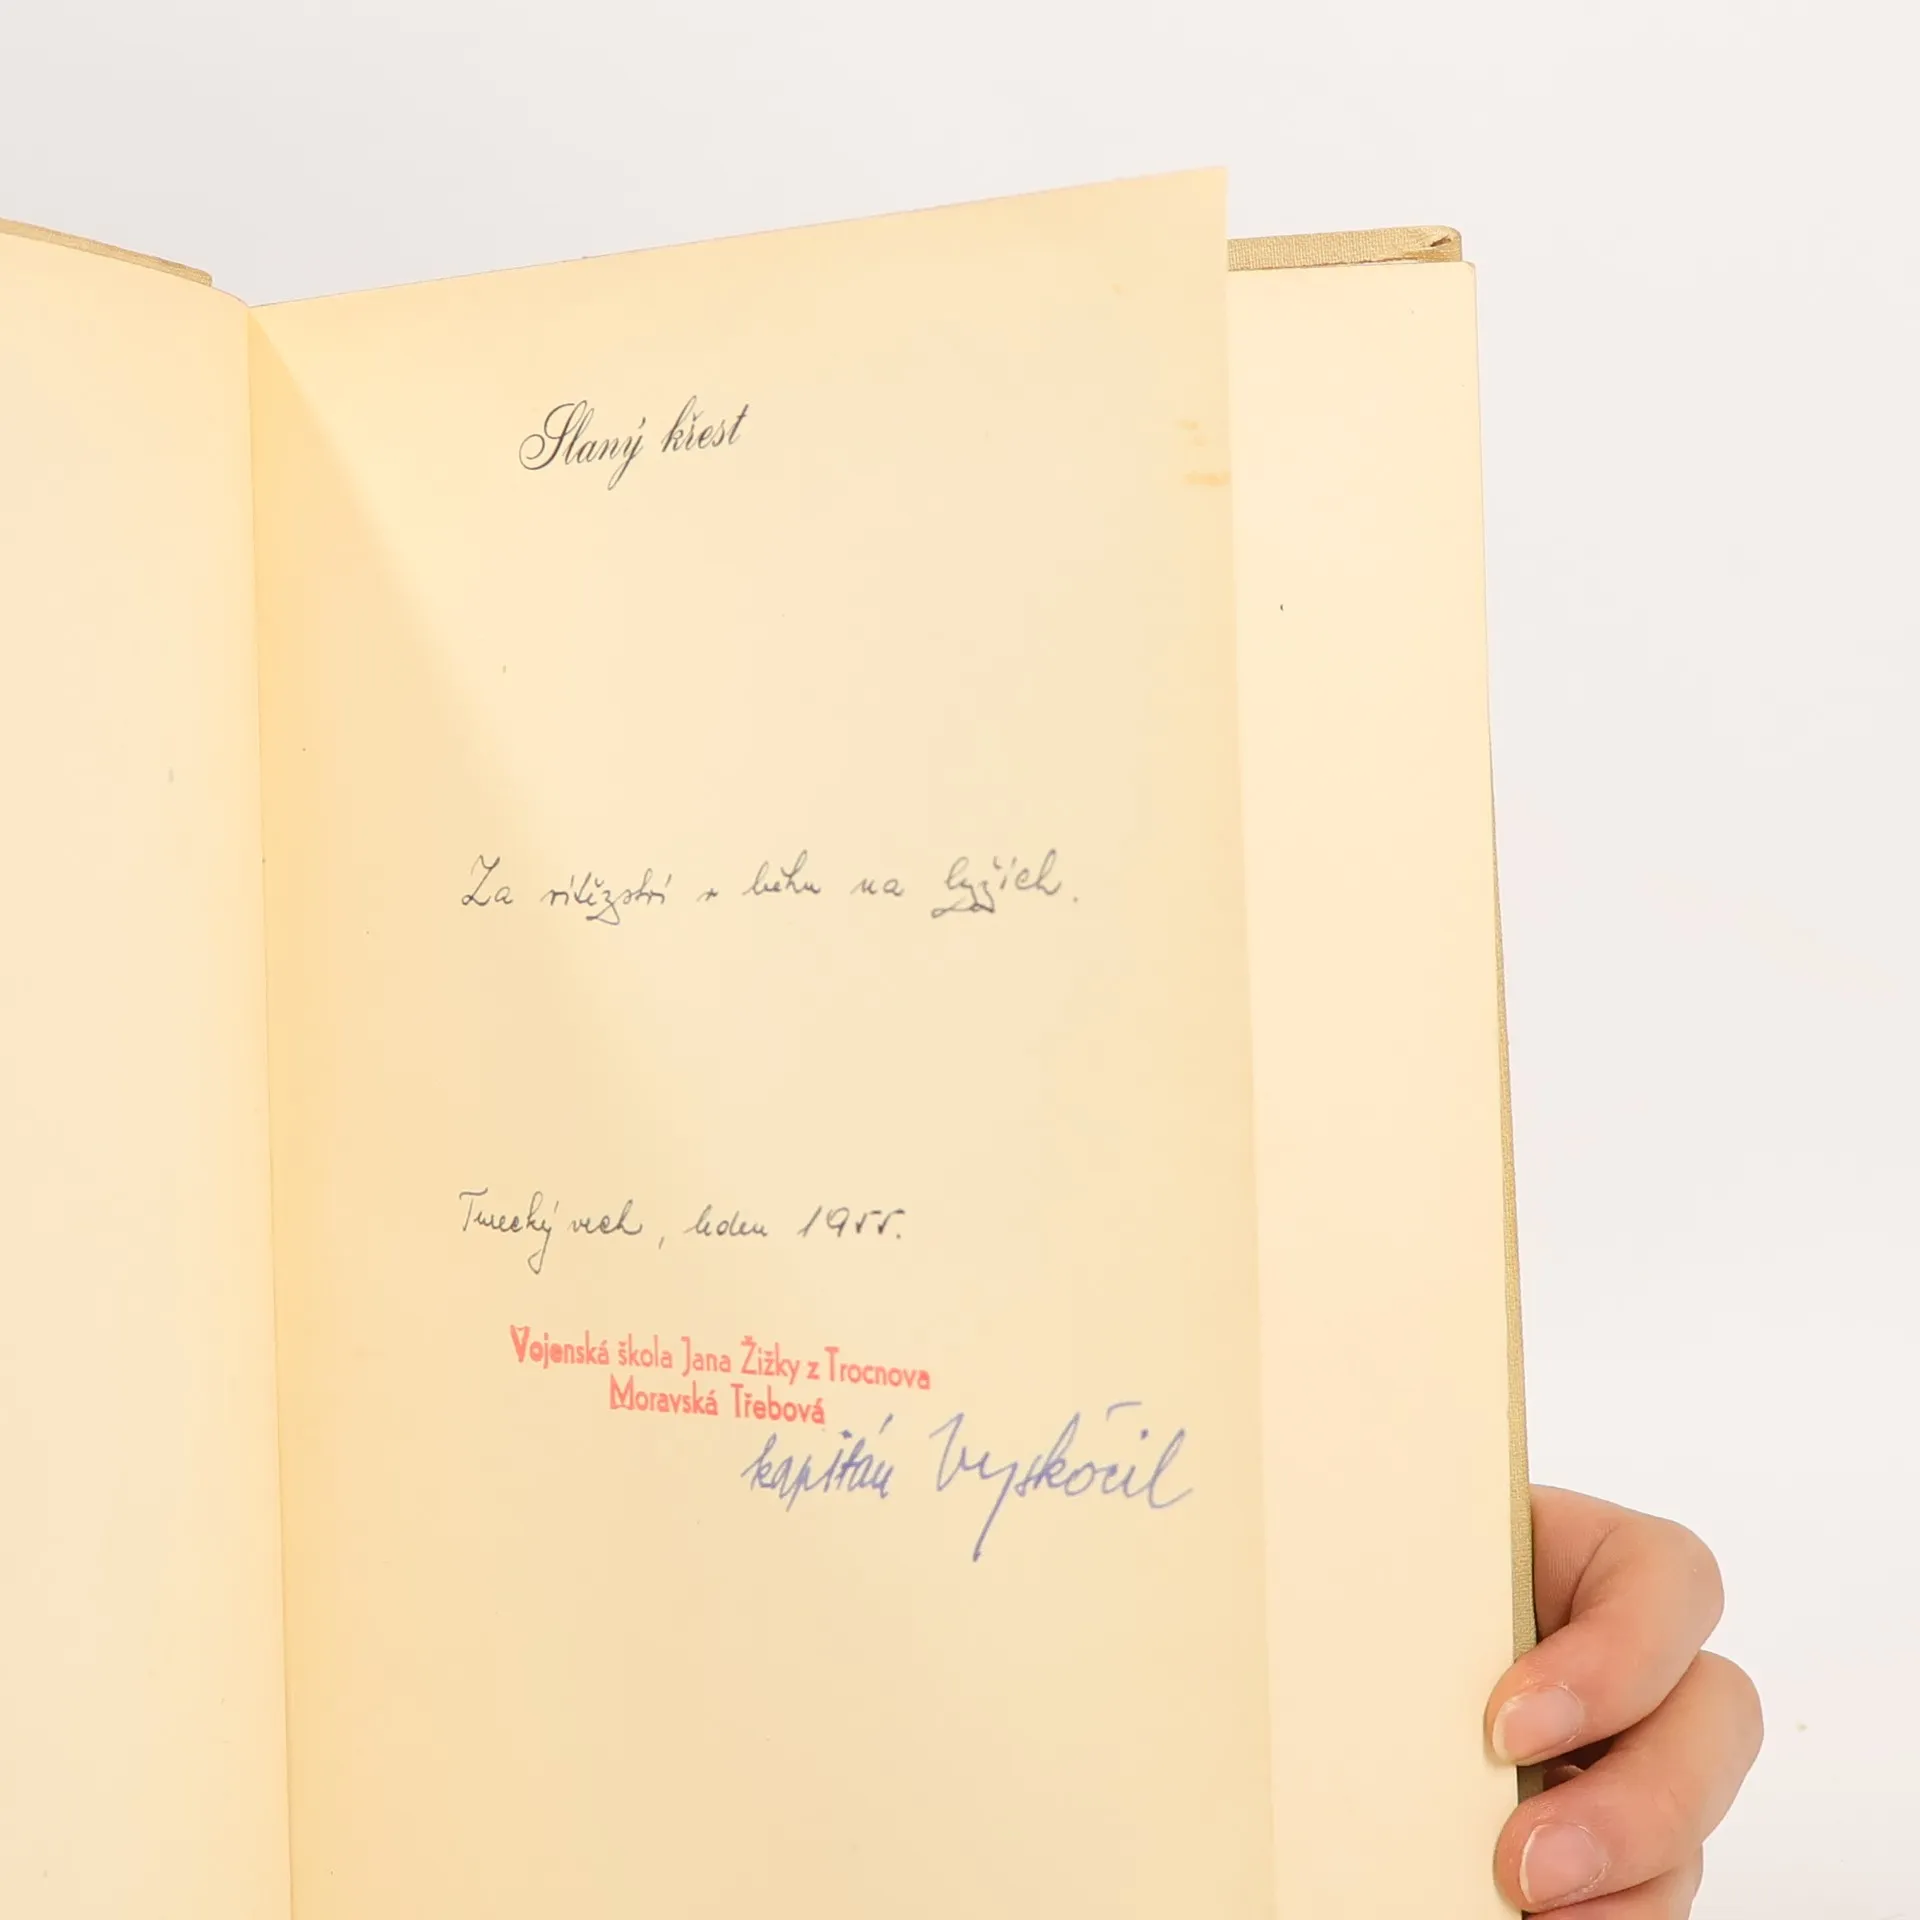 Slaný křest
Za vítězství v běhu na lyžích.
Turecký vrch, leden 1955.
Vojenská škola Jana Žižky z Trocnova
Moravská Třebová
kapitán Vyskočil